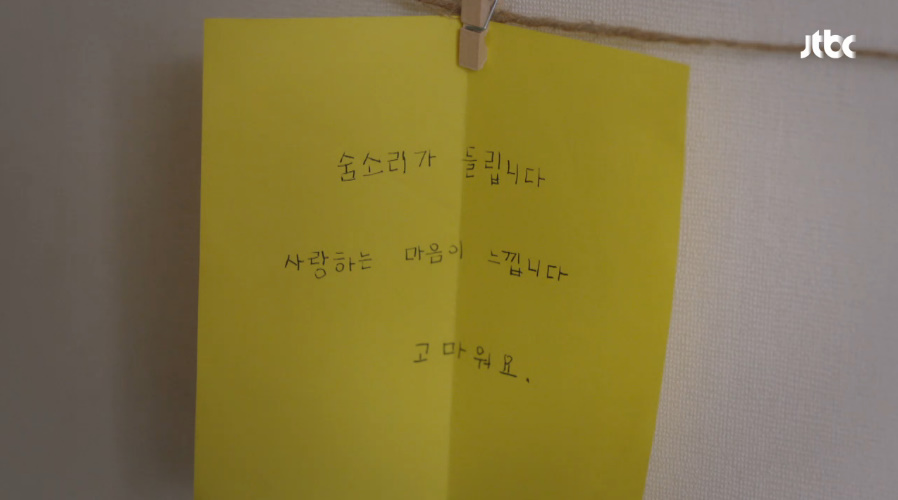 jtbc
숨소리가 들립니다
사랑하는 마음이 느낍니다
고마워요.